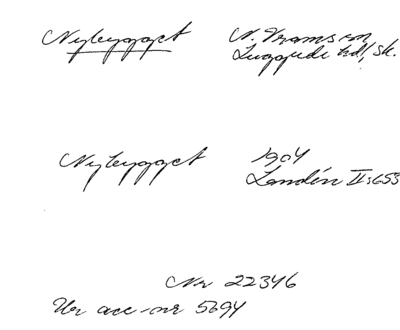 Nybygget N. Framsen,
Luggude hd, Sk.
Nybygget 1904
Landén II:653
Nr 22346
Ur acc-nr 5694